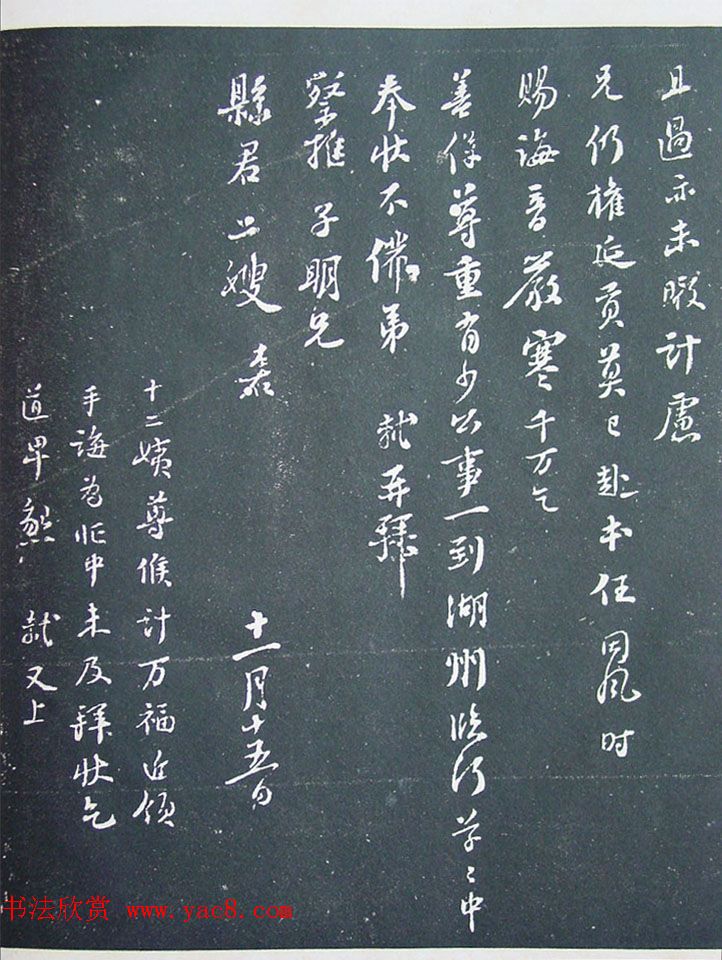 且過示未暇計慮
兄仍權延貢莫已赴本任因風时
賜誨音嚴寒千万乞
善保尊重有少公事一到湖州臨行草〻中
奉狀不備弟 軾再拜
察推子明兄
縣君二嫂 表
十一月十五日
十二姨尊候計万福近領
手誨為忙中未及拜狀乞
道卑懇 軾又上
书法欣赏 www.yac8.com